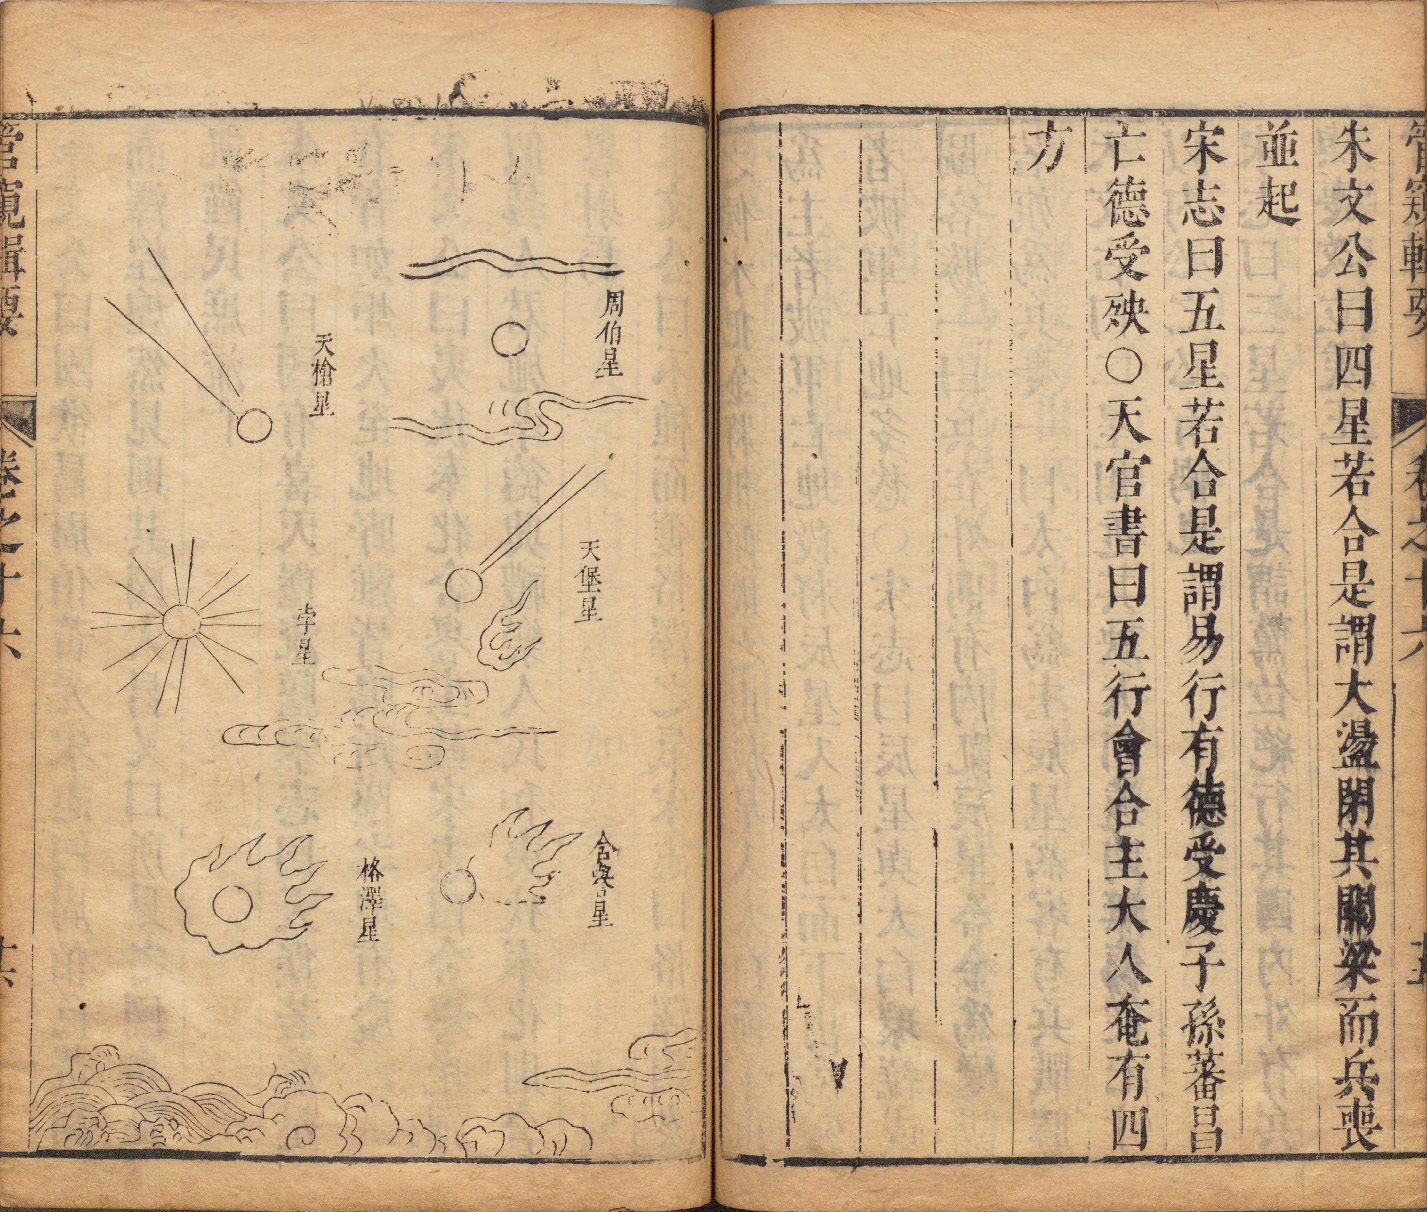 管窺輯要
卷之十六
朱文公曰四星若合是謂大盪閉其關梁而兵喪
並起
宋志曰五星若合是謂易行有德受慶子孫蕃昌
亡德受殃○天官書曰五行會合主大人奄有四
方
周伯星
天槍星
天堡星
孛星
含譽星
格澤星
管窺輯要
卷之十六